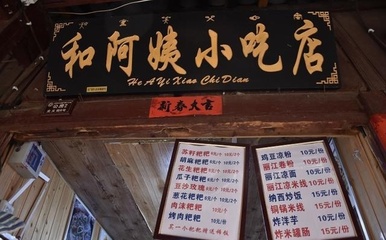 和阿姨小吃店
He A Yi Xiao Chi Dian
新春大吉
胡麻粑粑
花生粑粑
瓜子粑粑
豆沙玫瑰
葱花粑粑
肉沫粑粑 10元/个
烤肉粑粑 10元/个
鸡豆凉粉 10元/份
丽江卷粉 10元/份
丽江凉面 10元/份
丽江凉米线 10元/份
纳西炒饭 15元/份
铜锅米线 15元/份
炸洋芋 10元/份
炸米罐肠 15元/份